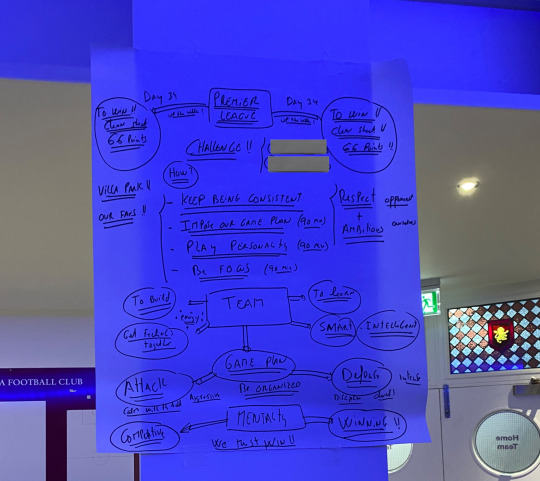 Day 34
PREMIER LEAGUE
Day 34
To WIN !!
Clean sheet
66 Points
To WIN !!
Clean sheet
66 Points !!
CHALLENGE !!
HOW?
VILLA PARK !!
OUR FANS !!
- KEEP BEING CONSISTENT
- IMPOSE OUR GAME PLAN (90 min)
- PLAY PERSONALITY (90 min)
- BE FOCUS (90 min)
RESPECT opponent
+
AMBITIOUS ourselves
TEAM
To Build
enjoy!
together
SMART - INTELLIGENT
GAME PLAN
ATTACK
Aggressive
BE ORGANIZED
DEFENSE
MENTALITY
COMPETITIVE
WINNING !!
We must WIN !!
A FOOTBALL CLUB
Home
Team